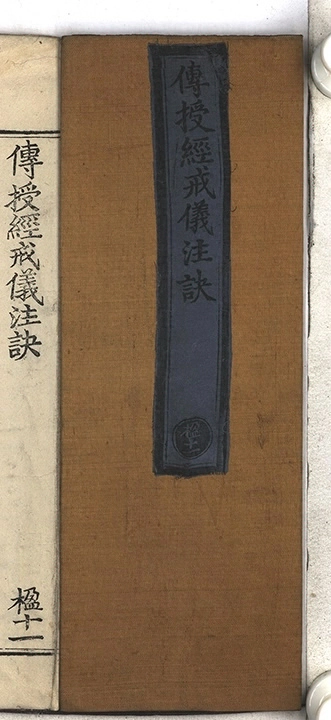 傳授經戒儀注訣
楹十一
傳授經戒儀注訣
楹十一